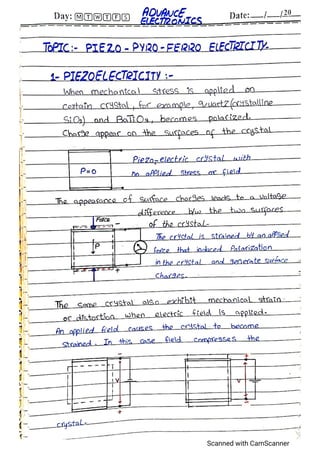 Day: M T W T F S
ADVANCE ELECTRONICS
Date: __/__/20__
TOPIC:- PIEZO-PYRO-FERRO ELECTRICITY.
1- PIEZOELECTRICITY :-
When mechanical stress is applied on
certain crystal, for example, quartz (crystalline
SiO2) and BaTiO3, becomes polarized.
Charge appear on the surfaces of the crystal
P=0
Piezo-electric crystal with
no applied stress or field
The appearance of surface charges leads to a voltage
difference b/w the two surfaces
of the crystal.
Force
P
The crystal is strained by an applied
force that induced Polarization
in the crystal and generate surface
charges.
The same crystal also exhibit mechanical strain
or distortion when electric field is applied.
An applied field causes the crystal to become
strained. In this case field compresses the
V
V
crystal.
Scanned with CamScanner